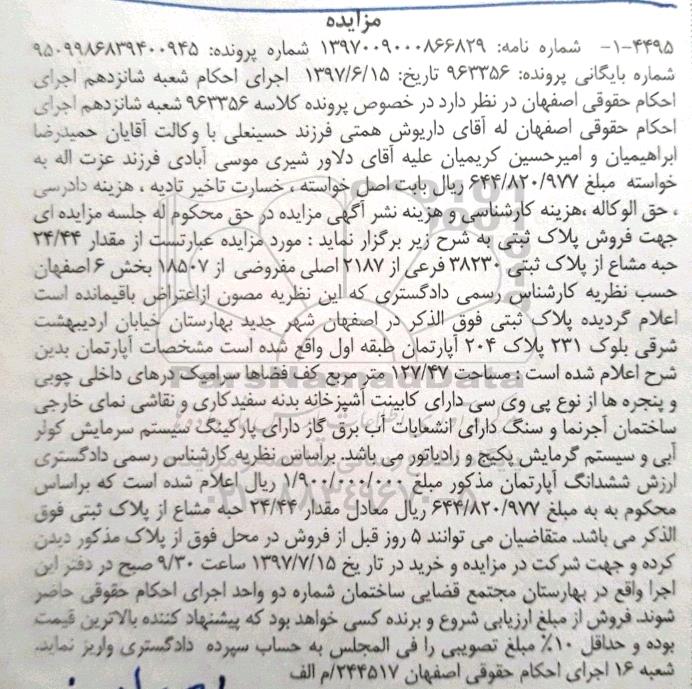 مزایده
۱-۴۴۹۵- شماره نامه: ۱۳۹۷۰۰۹۰۰۰۸۶۶۸۲۹ شماره پرونده: ۹۵۰۹۹۸۶۸۳۹۴۰۰۹۴۵
شماره بایگانی پرونده: ۹۶۳۳۵۶ تاریخ: ۱۳۹۷/۶/۱۵ اجرای احکام شعبه شانزدهم اجرای
احکام حقوقی اصفهان در نظر دارد در خصوص پرونده کلاسه ۹۶۳۳۵۶ شعبه شانزدهم اجرای
احکام حقوقی اصفهان له آقای داریوش همتی فرزند حسینعلی با وکالت آقایان حمیدرضا
ابراهیمیان و امیرحسین کریمیان علیه آقای دلاور شیری موسی آبادی فرزند عزت اله به
خواسته مبلغ ۶۴۴/۸۲۰/۹۷۷ ریال بابت اصل خواسته ، خسارت تاخیر تادیه ، هزینه دادرسی
، حق الوکاله ،هزینه کارشناسی و هزینه نشر آگهی مزایده در حق محکوم له جلسه مزایده ای
جهت فروش پلاک ثبتی به شرح زیر برگزار نماید : مورد مزایده عبارتست از مقدار ۲۴/۴۴
حبه مشاع از پلاک ثبتی ۳۸۲۳۰ فرعی از ۲۱۸۷ اصلی مفروضی از ۱۸۵۰۷ بخش ۶ اصفهان
حسب نظریه کارشناس رسمی دادگستری که این نظریه مصون ازاعتراض باقیمانده است
اعلام گردیده پلاک ثبتی فوق الذکر در اصفهان شهر جدید بهارستان خیابان اردیبهشت
شرقی بلوک ۲۳۱ پلاک ۲۰۴ آپارتمان طبقه اول واقع شده است مشخصات آپارتمان بدین
شرح اعلام شده است : مساحت ۱۲۷/۴۷ متر مربع کف فضاها سرامیک درهای داخلی چوبی
و پنجره ها از نوع پی وی سی دارای کابینت آشپزخانه بدنه سفیدکاری و نقاشی نمای خارجی
ساختمان آجرنما و سنگ دارای انشعابات آب برق گاز دارای پارکینگ سیستم سرمایش کولر
آبی و سیستم گرمایش پکیج و رادیاتور می باشد. براساس نظریه کارشناس رسمی دادگستری
ارزش ششدانگ آپارتمان مذکور مبلغ ۱/۹۰۰/۰۰۰/۰۰۰ ریال اعلام شده است که براساس
محکوم به به مبلغ ۶۴۴/۸۲۰/۹۷۷ ریال معادل مقدار ۲۴/۴۴ حبه مشاع از پلاک ثبتی فوق
الذکر می باشد. متقاضیان می توانند ۵ روز قبل از فروش در محل فوق از پلاک مذکور دیدن
کرده و جهت شرکت در مزایده و خرید در تار یخ ۱۳۹۷/۷/۱۵ ساعت ۹/۳۰ صبح در دفتر این
اجرا واقع در بهارستان مجتمع قضایی ساختمان شماره دو واحد اجرای احکام حقوقی حاضر
شوند. فروش از مبلغ ارزیابی شروع و برنده کسی خواهد بود که پیشنهاد کننده بالاترین قیمت
بوده و حداقل ۱۰٪ مبلغ تصویبی را فی المجلس به حساب سپرده دادگستری واریز نماید.
شعبه ۱۶ اجرای احکام حقوقی اصفهان ۲۴۴۵۱۷/م الف
ParsNamadData